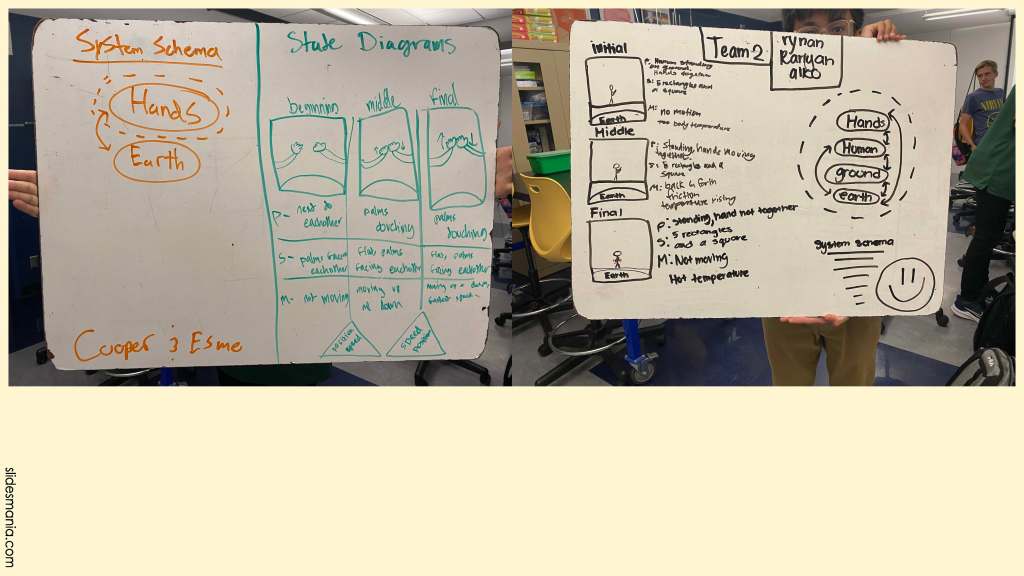 System Schema
Hands
Earth
Cooper & Esme
State Diagrams
beginning
middle
final
P- next to
eachother
palms
touching
palms
touching
S- palms face
eachother
flat, palms
facing eachother
flat, palms
facing eachother
M- not moving
moving up
down
moving up & down,
speed
position
Team 2
rynan
initial
P: Human standing
on ground,
Hands together
S: 5 rectangles and
a square
M: no motion
body temperature
Earth
Middle
P: Standing, hands moving
together
S: 5 rectangles and a
square
M: back & forth
friction
temperature rising
Earth
Final
P: Standing, hand not together
S: 5 rectangles
and a square
M: Not moving
Hot temperature
Earth
Hands
Human
ground
earth
System schema
slidesmania.com